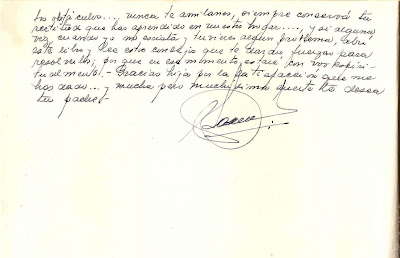 los obstáculos...., nunca te amilanes, siempre conservá tu
rectitud que has aprendido en nuestro hogar...., y si alguna
vez, cuando ya no exista y tuvieras algún problema, abrí
este libro y lee estos consejos que te darán fuerzas para
resolverlos; porque en ese momento, estaré con vos espiri-
tualmente.- Gracias hija por la satisfacción que me
has dado... y mucha pero muchísima suerte te desea
tu padre.-